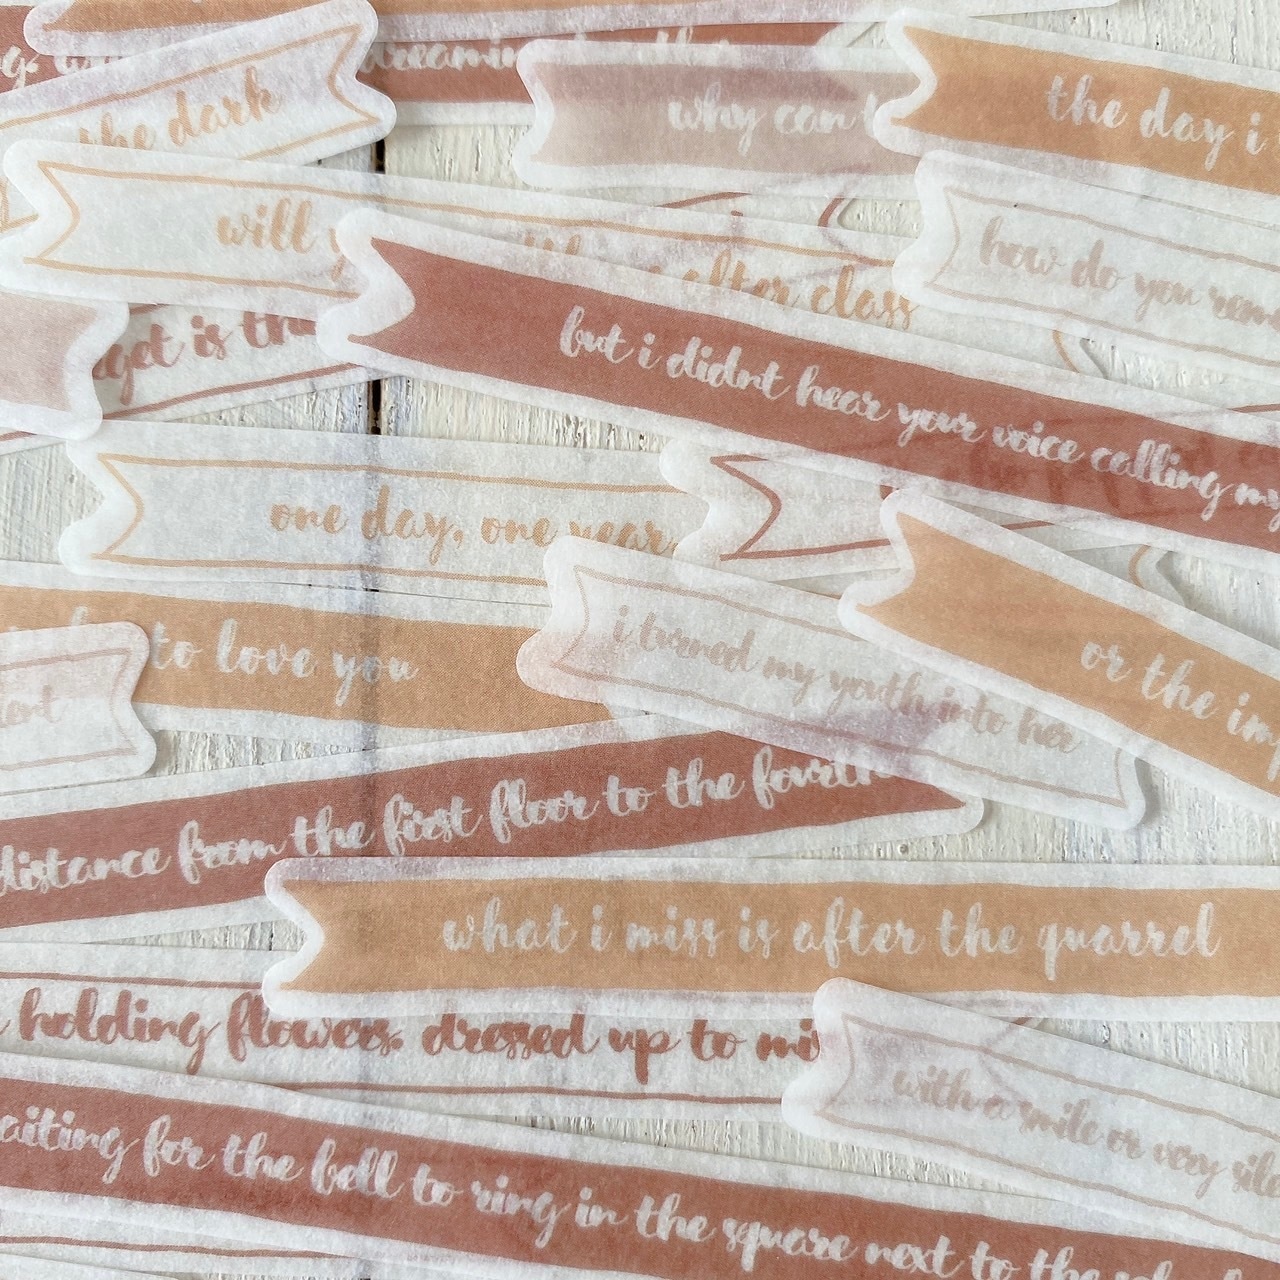 dreaming
the dark
why can
the day i
will
after class
how do you
get is
but i didnt hear your voice calling my
one day, one year
to love you
i turned my youth into her
or the
distance from the first floor to the fourth
what i miss is after the quarrel
holding flowers. dressed up to
with a smile or very
for the bell to ring in the square next to the